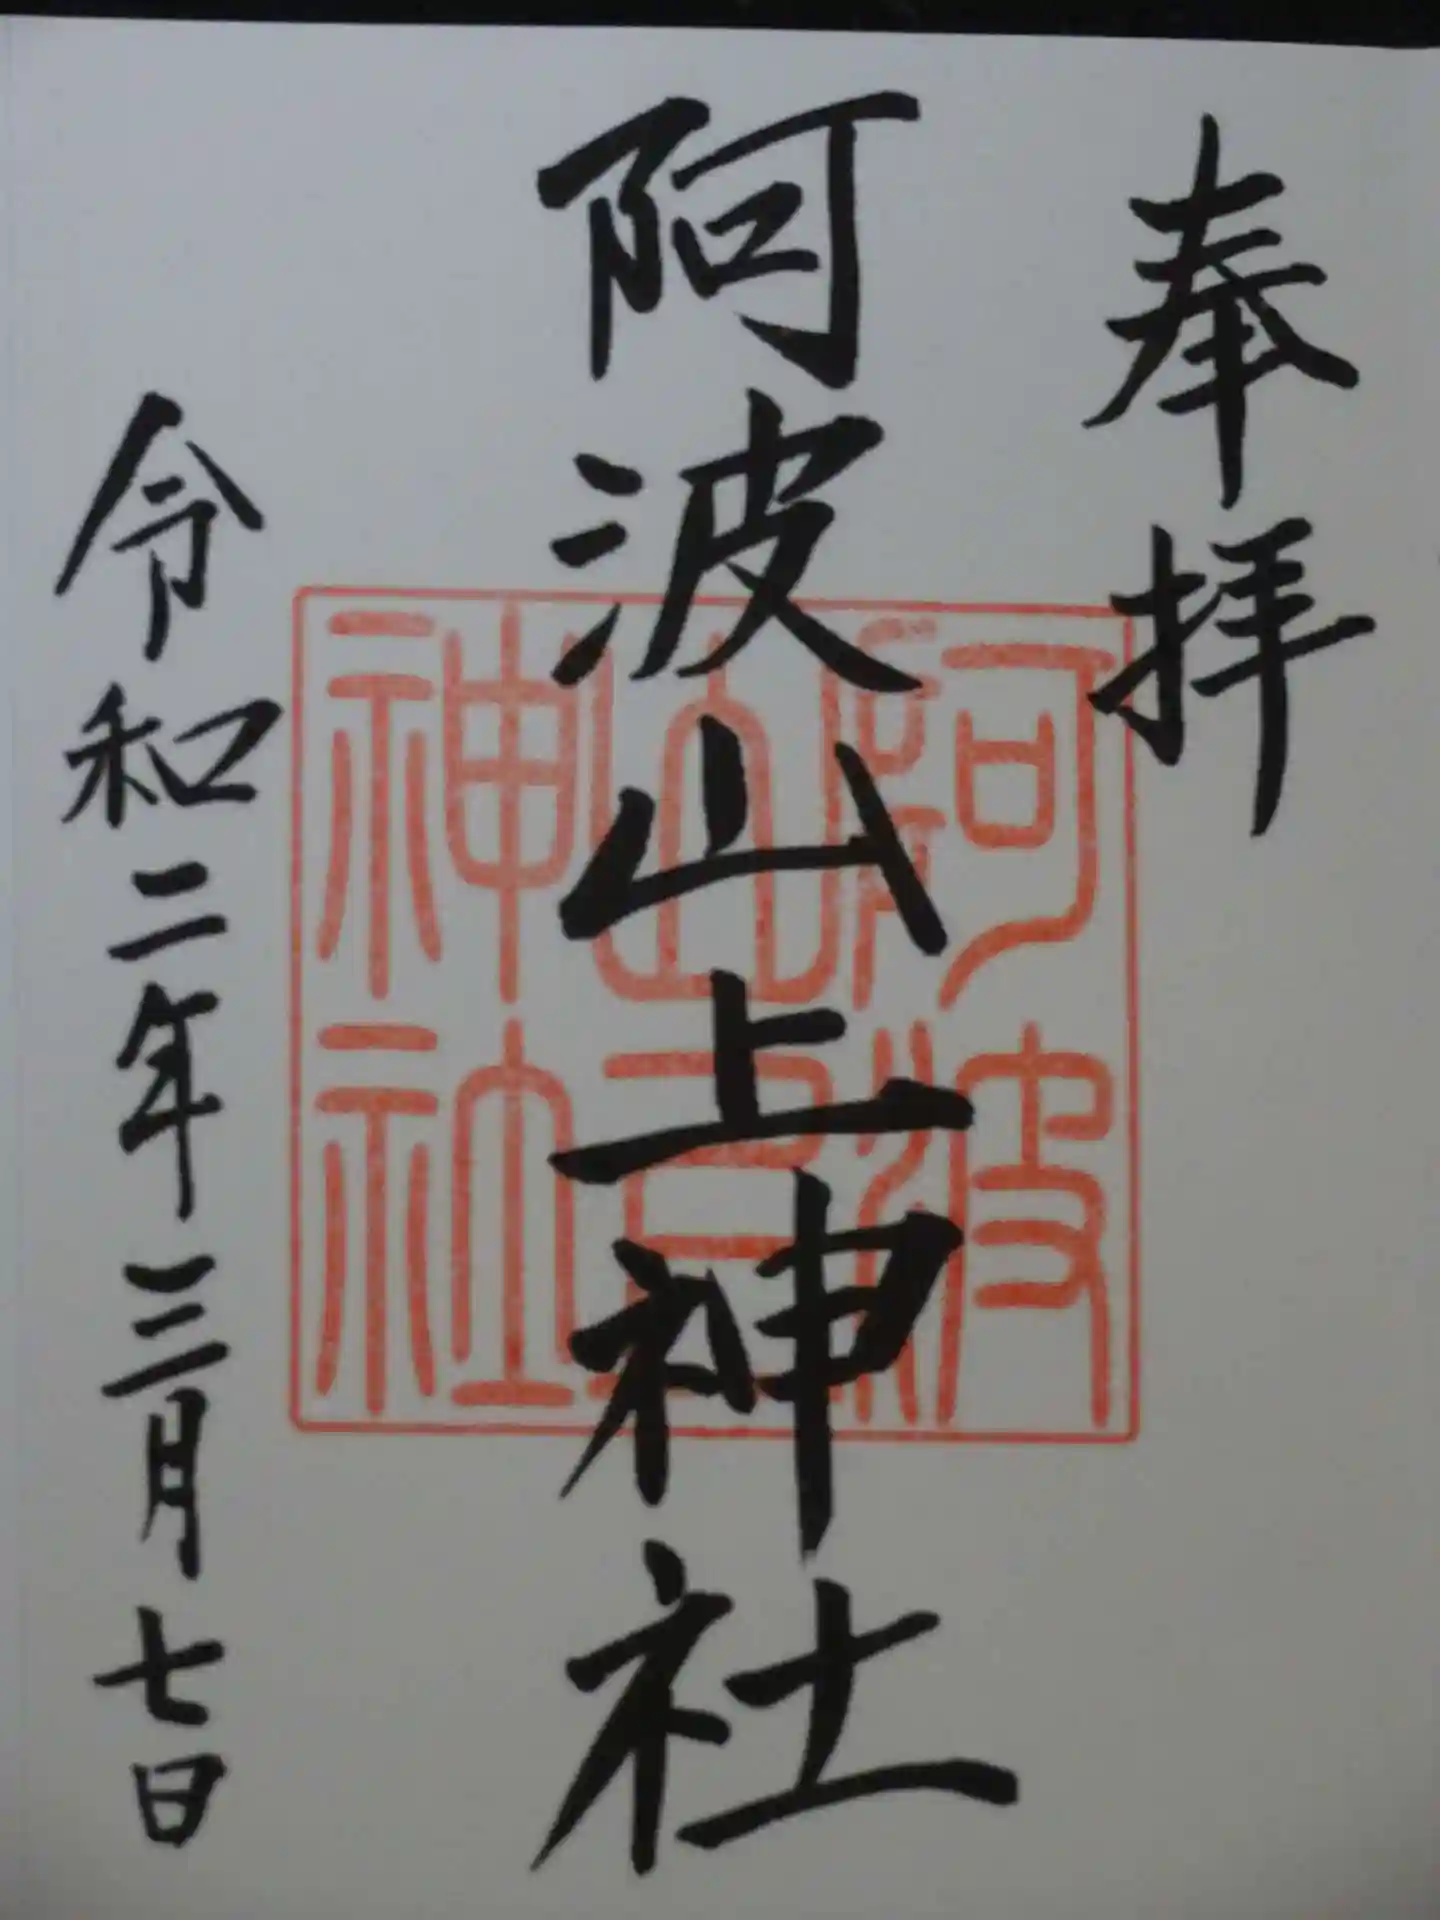 奉拝
阿波山上神社
令和二年三月七日
阿波
山
神社